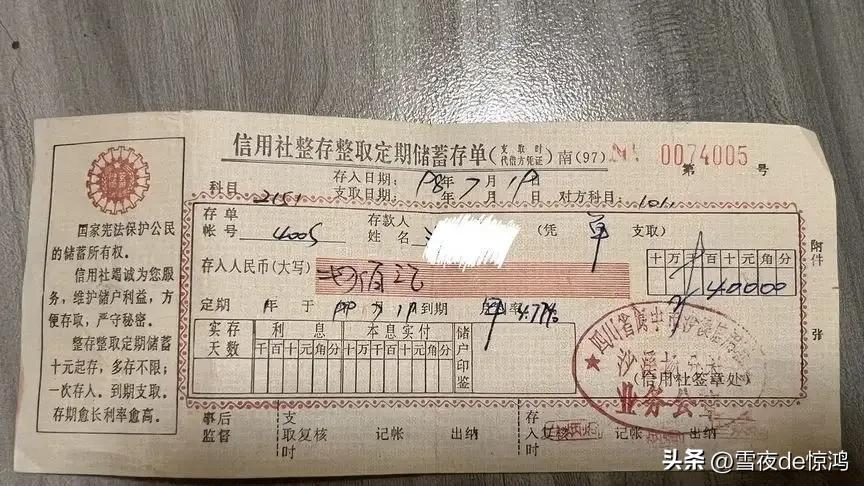 信用社整存整取定期储蓄存单(支取时代借方凭证)南(97)
第 0074005 号
存入日期: 98年7月1日
支取日期: 年 月 日
科目 2151
对方科目: 101
国家宪法保护公民的储蓄所有权。
信用社竭诚为您服务,维护储户利益,方便存取,严守秘密。
整存整取定期储蓄十元起存,多存不限;一次存入、到期支取。存期愈长利率愈高。
存单帐号 4005
存款人姓名
(凭 单 支取)
附件 张
存入人民币(大写)
十万千百十元角分
40000
定期 年 于 年 月 日到期
利率 4.77%
实存天数
利息
千百十元角分
本息实付
十万千百十元角分
储户印鉴
四川省
沙溪
业务公章
(信用社签章处)
事后监督
支取时 复核 记帐 出纳
存入时 复核 记帐 出纳
头条 @雪夜de惊鸿